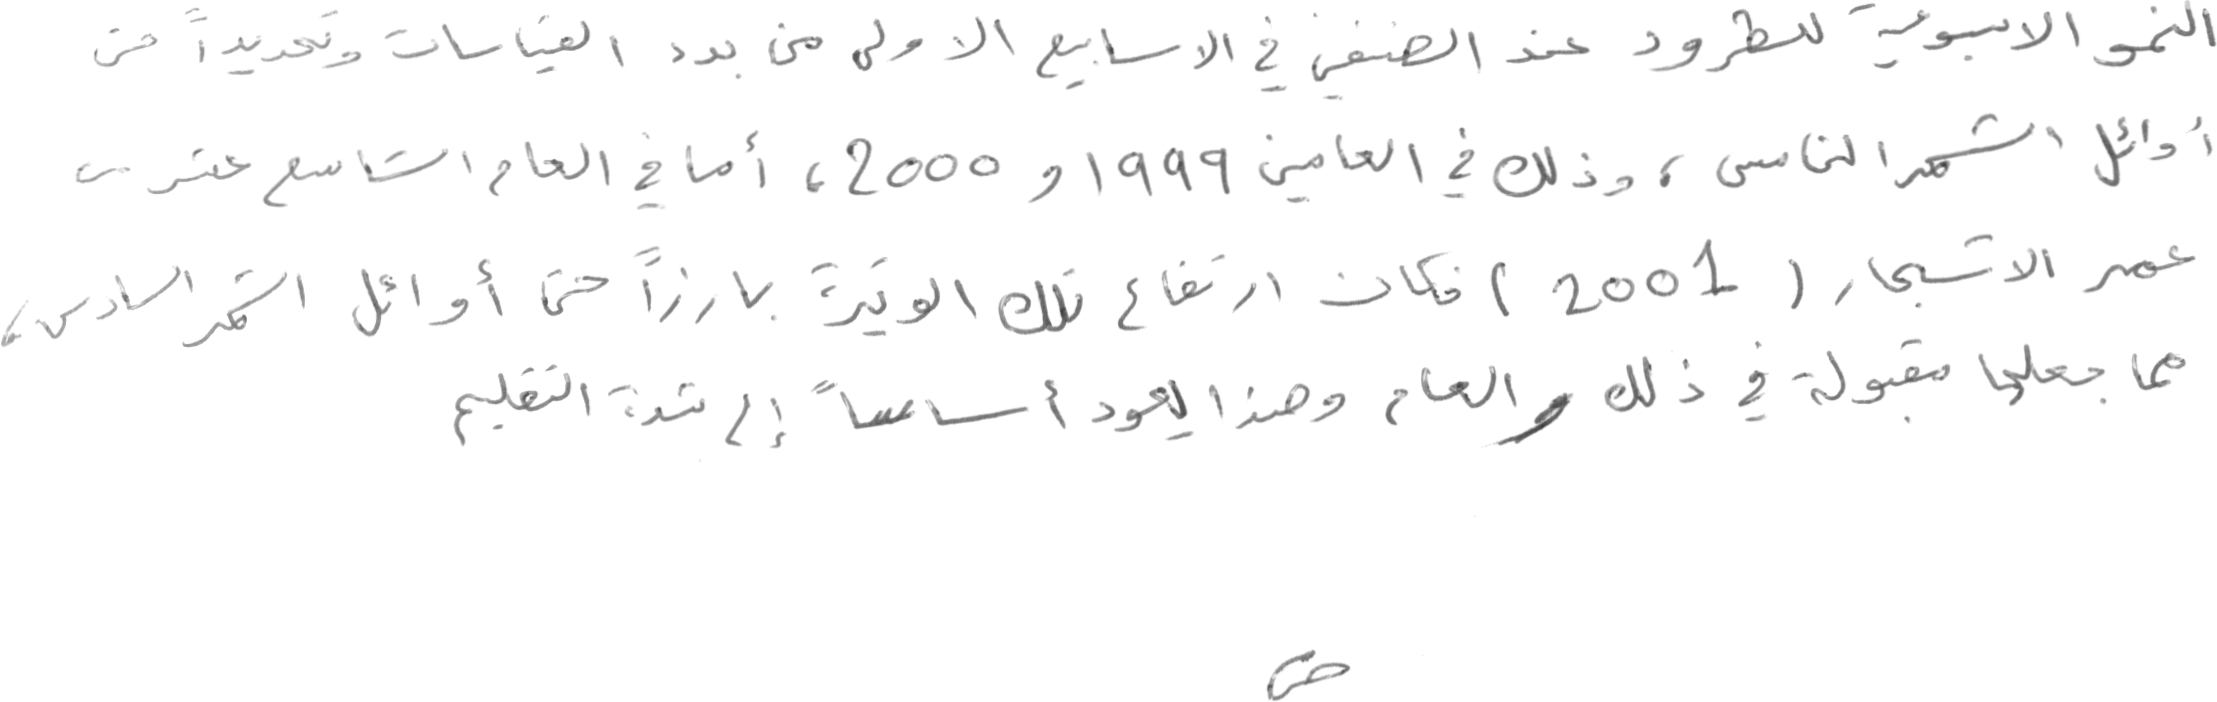 النمو الاسبوعية للطرود عند الصنفين في الاسابيع الاولى من بدد القياسات وتحديداً حتى
أوائل الشهر الخامس ، وذلك في العامين 1999 و 2000 ، أما في العام التاسع عشر من
عمر الاشجار ( 2001 ) فكان ارتفاع تلك الوتيرة بارزاً حتى أوائل الشهر السادس ،
مما جعلها مقبولة في ذلك العام وهذا يعود أساساً إلى شدة التقليم